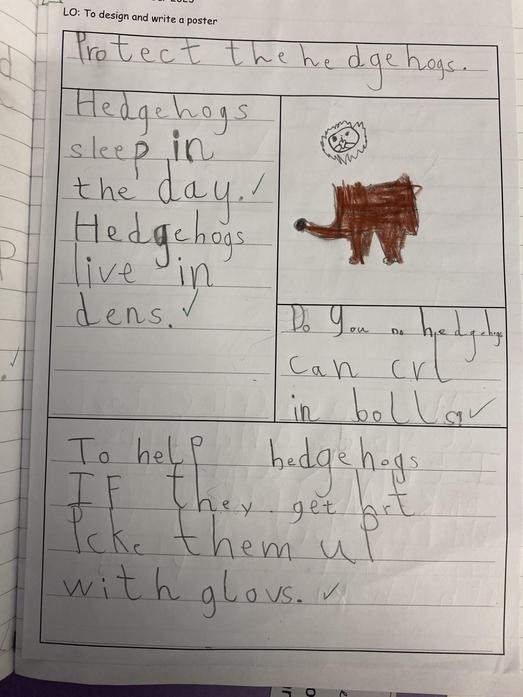 LO: To design and write a poster
Protect the hedgehogs.
Hedgehogs
sleep in
the day.
Hedgehogs
live in
dens.
Do you no hedgehogs
can crl
in bolls
To help hedgehogs
IF they get hrt
Pcke them up
with glovs.